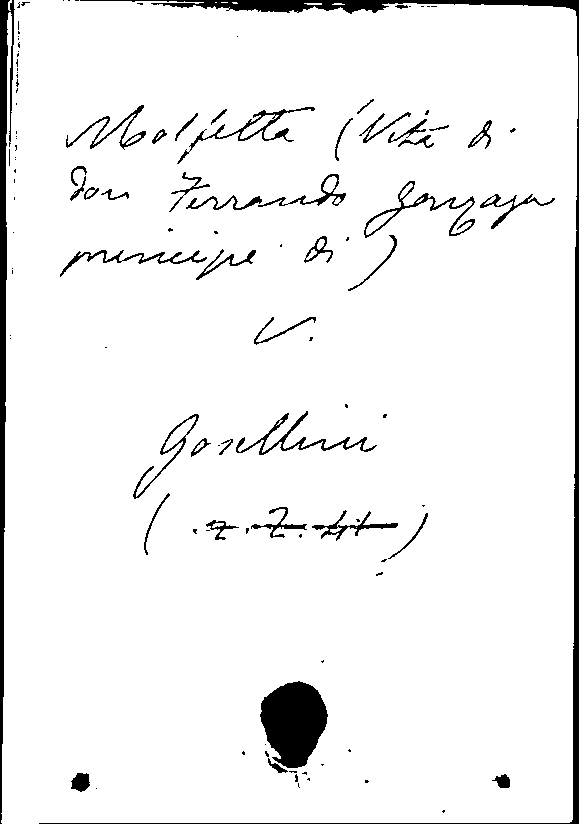 Molfetta (Vita di
don Ferrando Gonzaga
principe di)
V.
Gosellini